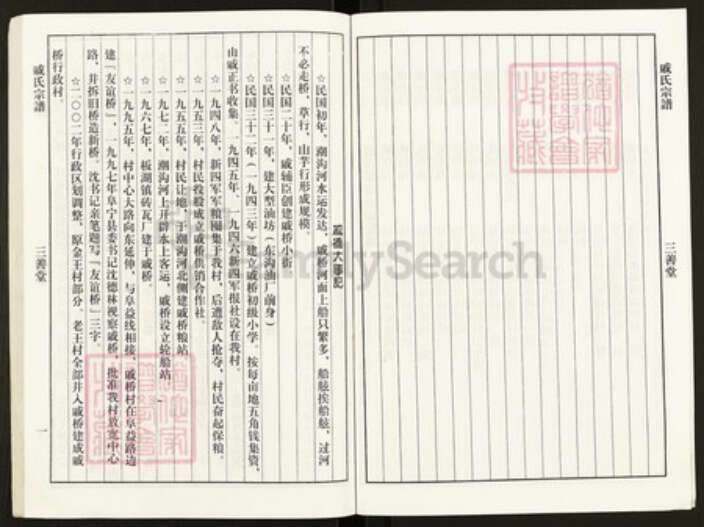 戚氏宗譜
三善堂
戚橋大事記
☆民国初年，潮沟河水运发达，戚桥河面上船只繁多，船舷挨船舷，过河
不必走桥，草行、山芋行形成规模。
☆民国二十年，戚辅臣创建戚桥小街
☆民国三十一年，建大型油坊（东沟油厂前身）
☆民国三十二年（一九四三年）建立戚桥初级小学。按每亩地五角钱集资，
由戚正书收集。一九四五年、一九四六新四军报社设在我村。
☆一九四八年，新四军军粮囤集于我村，后遭敌人抢夺，村民奋起保粮。
☆一九五三年，村民投股成立戚桥供销合作社。
☆一九五五年，村民让地，于潮沟河北侧建戚桥粮站
☆一九七二年，潮沟河上开辟水上客运，戚桥设立轮船站
☆一九六七年，板湖镇砖瓦厂建于戚桥。
☆一九九五年，村中心大路向东延伸，与阜益线相接，戚桥村在阜益路边
建“友谊桥”，一九九七年阜宁县委书记沈德林视察戚桥，批准我村放宽中心
路，并拆旧桥造新桥。沈书记亲笔题写“友谊桥”三字。
☆二〇〇二年行政区划调整，原金王村部分、老王村全部并入戚桥建成戚
桥行政村。
戚氏宗譜
三善堂
一